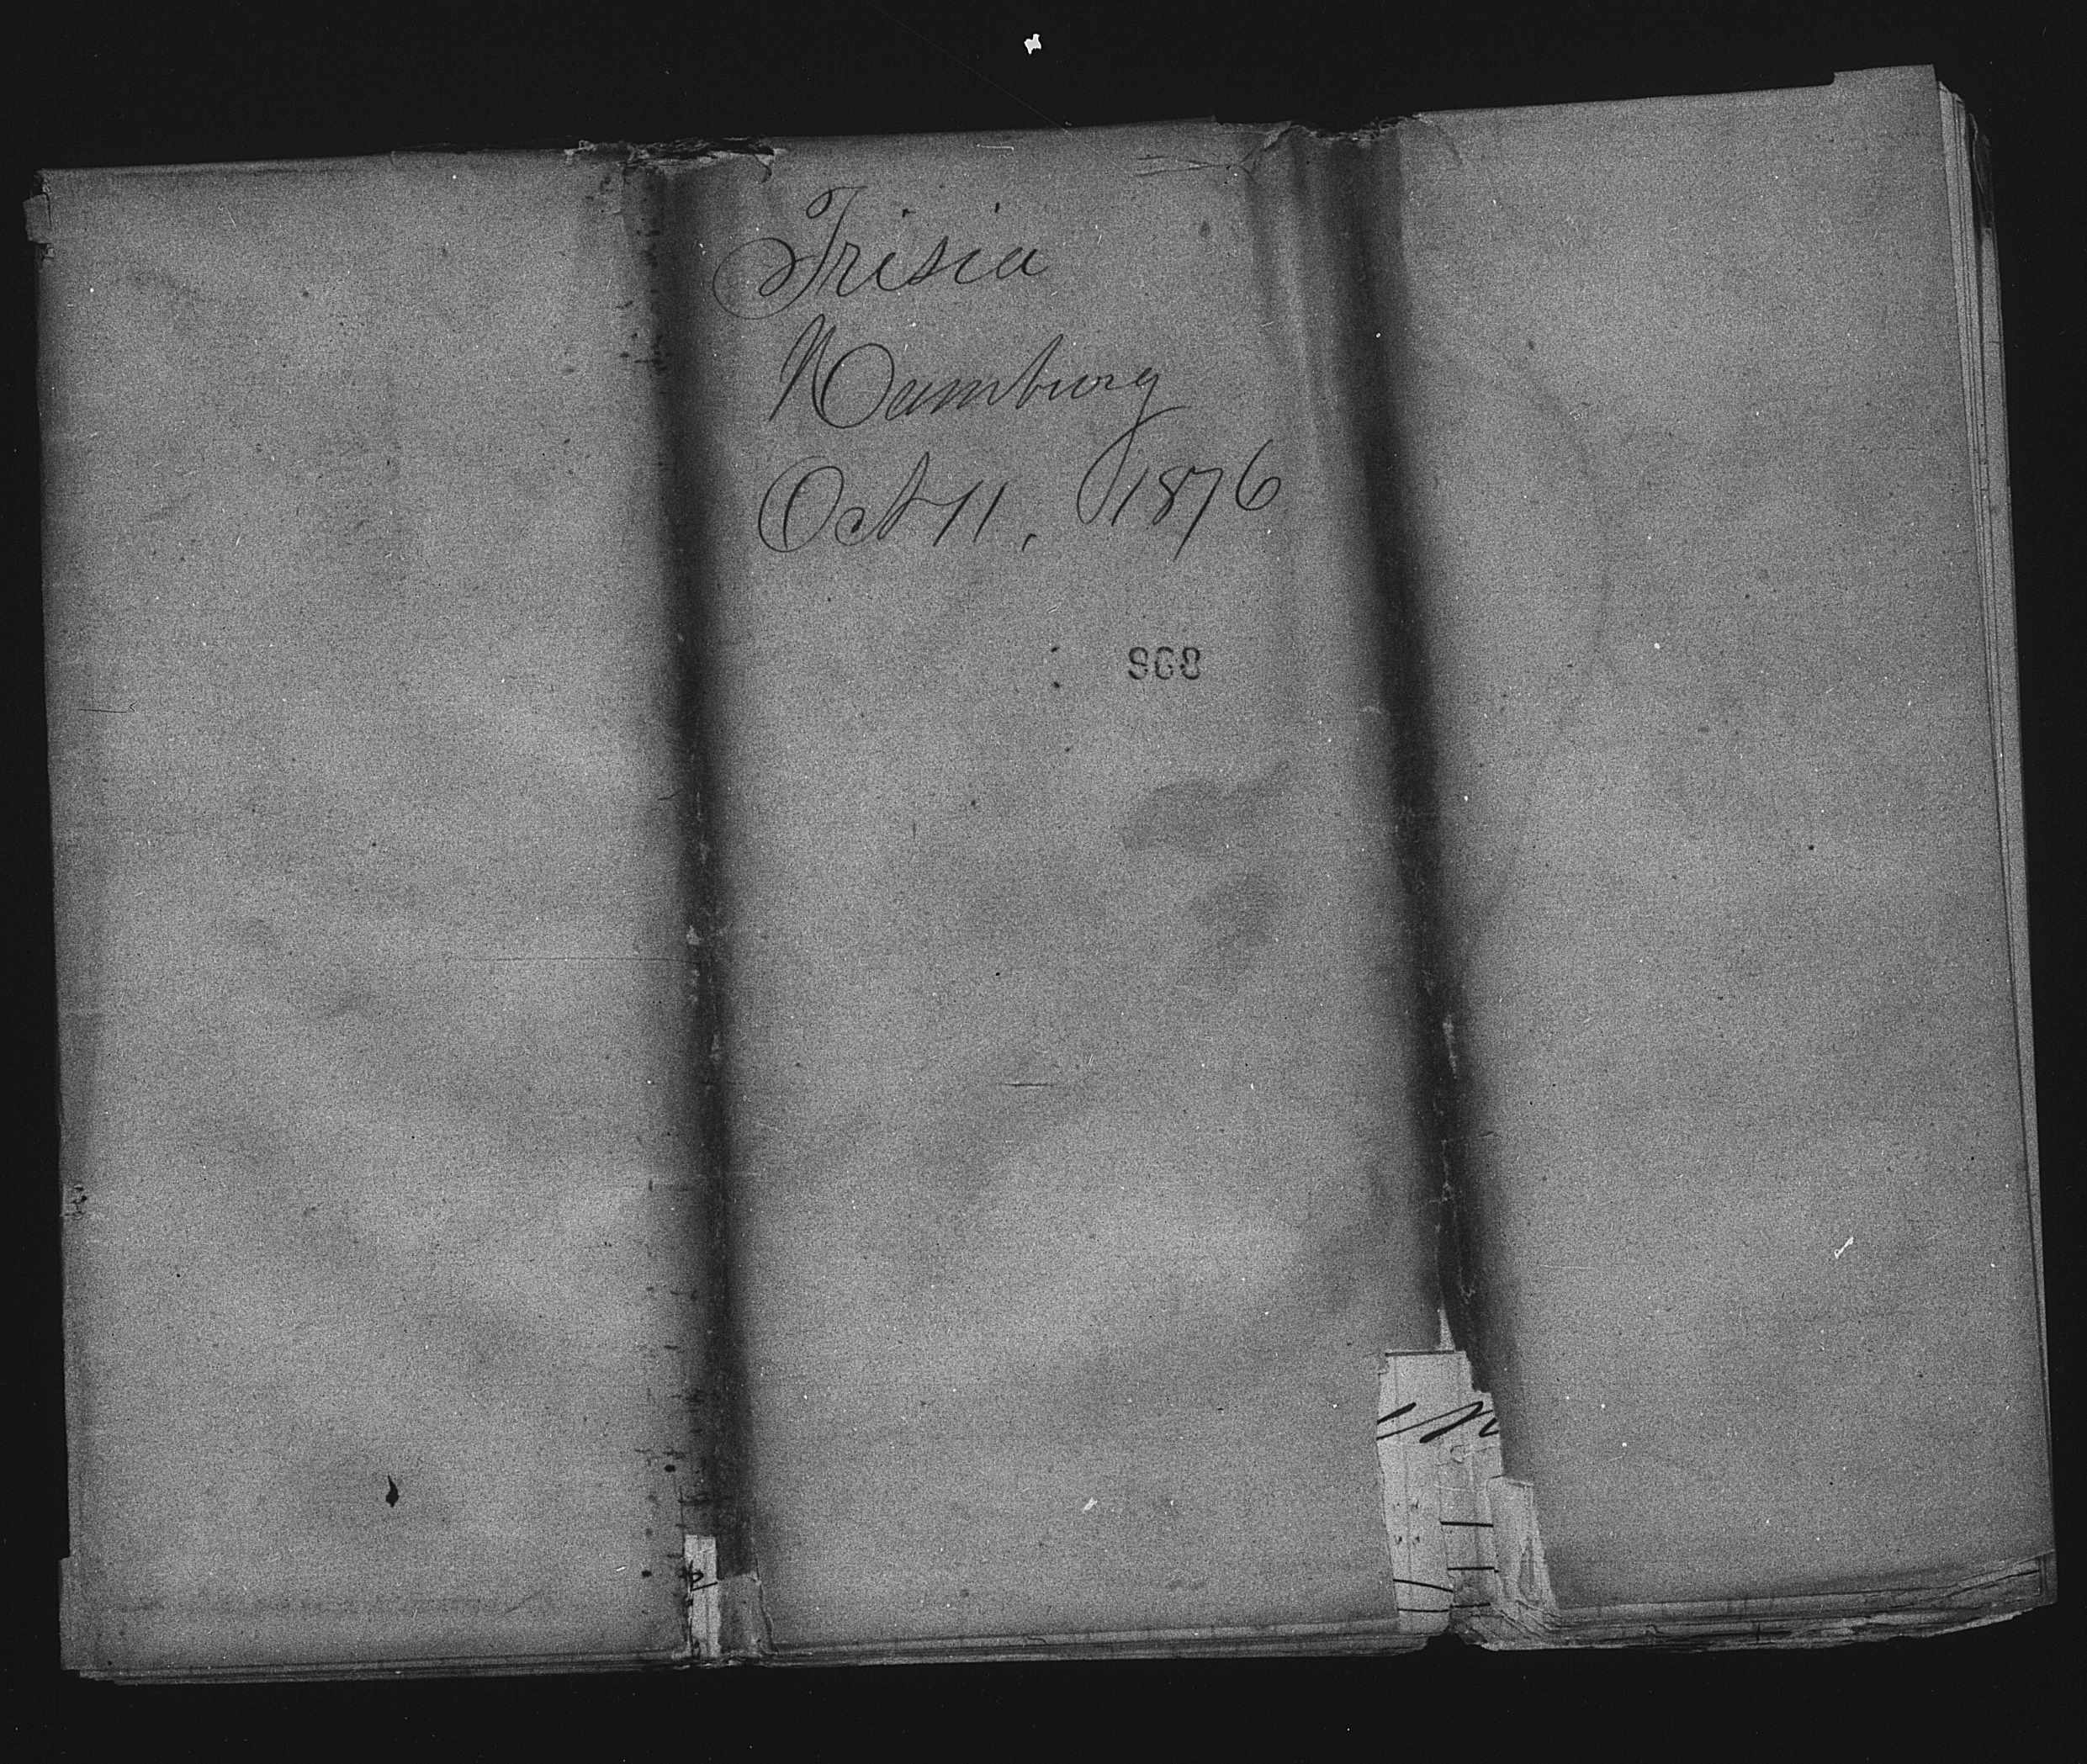 Frisia
Hamburg
Oct 11, 1876
968